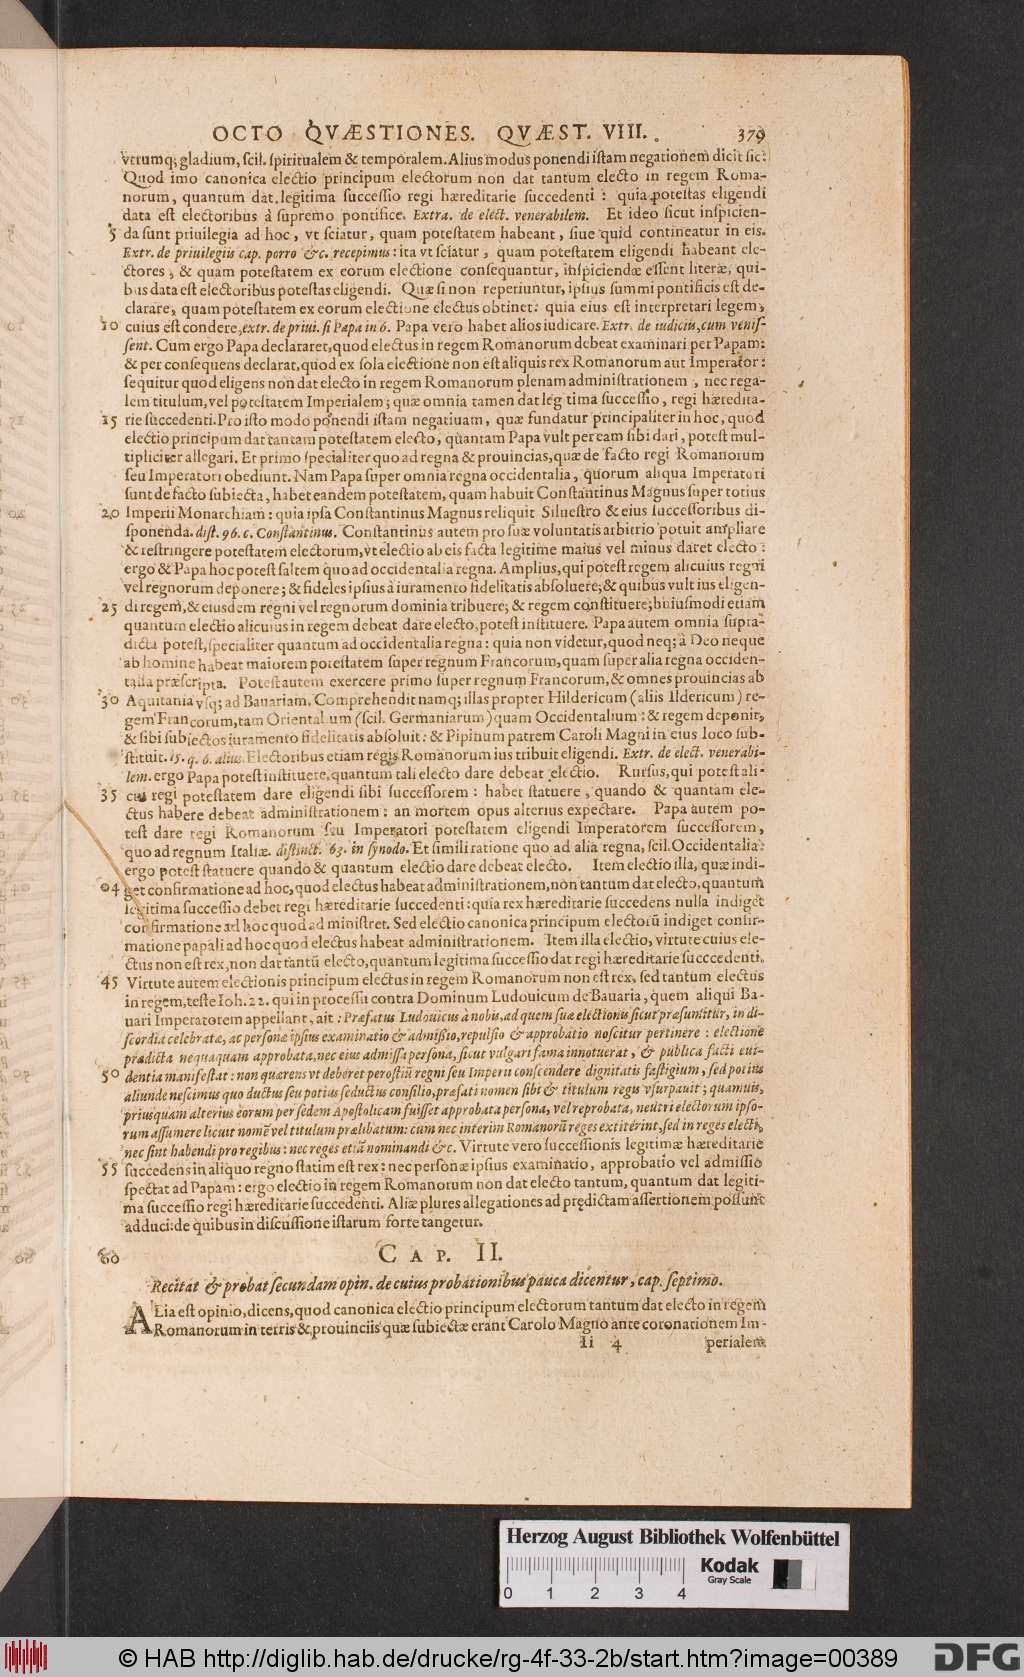 OCTO QVÆSTIONES. QVÆST. VIII. 379
vtrumq; gladium, scil. spiritualem & temporalem. Alius modus ponendi istam negationem dicit sic:
Quod imo canonica electio principum electorum non dat tantum electo in regem Roma-
norum, quantum dat legitima successio regi hæreditarie succedenti: quia potestas eligendi
data est electoribus à supremo pontifice. Extra. de elect. venerabilem. Et ideo sicut inspicien-
5 da sunt priuilegia ad hoc, vt sciatur, quam potestatem habeant, siue quid contineatur in eis.
Extr. de priuilegiis cap. porro &c. recepimus: ita vt sciatur, quam potestatem eligendi habeant ele-
ctores, & quam potestatem ex eorum electione consequantur, inspiciendæ essent literæ, qui-
bus data est electoribus potestas eligendi. Quæ si non reperiuntur, ipsius summi pontificis est de-
clarare, quam potestatem ex eorum electione electus obtinet: quia eius est interpretari legem,
10 cuius est condere, extr. de priui. si Papa in 6. Papa vero habet alios iudicare. Extr. de iudiciis, cum venis-
sent. Cum ergo Papa declararet, quod electus in regem Romanorum debeat examinari per Papam:
& per consequens declarat, quod ex sola electione non est aliquis rex Romanorum aut Imperator:
sequitur quod eligens non dat electo in regem Romanorum plenam administrationem, nec rega-
lem titulum, vel potestatem Imperialem; quæ omnia tamen dat leg tima successio, regi hæredita-
15 rie succedenti. Pro isto modo ponendi istam negatiuam, quæ fundatur principaliter in hoc, quod
electio principum dat tantam potestatem electo, quantam Papa vult per eam sibi dari, potest mul-
tipliciter allegari. Et primo specialiter quo ad regna & prouincias, quæ de facto regi Romanorum
seu Imperatori obediunt. Nam Papa super omnia regna occidentalia, quorum aliqua Imperatori
sunt de facto subiecta, habet eandem potestatem, quam habuit Constantinus Magnus super totius
20 Imperii Monarchiam: quia ipsa Constantinus Magnus reliquit Siluestro & eius successoribus di-
sponenda. dist. 96. c. Constantinus. Constantinus autem pro suæ voluntatis arbitrio potuit ampliare
& restringere potestatem electorum, vt electio ab eis facta legitime maius vel minus daret electo:
ergo & Papa hoc potest saltem quo ad occidentalia regna. Amplius, qui potest regem alicuius regni
vel regnorum deponere; & fideles ipsius à iuramento fidelitatis absoluere; & quibus vult ius eligen-
25 di regem, & eiusdem regni vel regnorum dominia tribuere; & regem constituere; huiusmodi etiam
quantum electio alicuius in regem debeat dare electo, potest instituere. Papa autem omnia supra-
dicta potest, specialiter quantum ad occidentalia regna: quia non videtur, quod neq; à Deo neque
ab homine habeat maiorem potestatem super regnum Francorum, quam super alia regna occiden-
talia præscripta. Potest autem exercere primo super regnum Francorum, & omnes prouincias ab
30 Aquitania vsq; ad Bauariam. Comprehendit namq; illas propter Hildericum (aliis Ildericum) re-
gem Francorum, tam Oriental um (scil. Germaniarum) quam Occidentalium: & regem deponit,
& sibi subiectos iuramento fidelitatis absoluit: & Pipinum patrem Caroli Magni in eius loco sub-
stituit. 15. q. 6. alius. Electoribus etiam regis Romanorum ius tribuit eligendi. Extr. de elect. venerabi-
lem. ergo Papa potest instituere, quantum tali electo dare debeat electio. Rursus, qui potest ali-
35 cui regi potestatem dare eligendi sibi successorem: habet statuere, quando & quantam ele-
ctus habere debeat administrationem: an mortem opus alterius expectare. Papa autem po-
test dare regi Romanorum seu Imperatori potestatem eligendi Imperatorem successorem,
quo ad regnum Italiæ. distinct. 63. in synodo. Et simili ratione quo ad alia regna, scil. Occidentalia:
ergo potest statuere quando & quantum electio dare debeat electo. Item electio illa, quæ indi-
04 get confirmatione ad hoc, quod electus habeat administrationem, non tantum dat electo, quantum
legitima successio debet regi hæreditarie succedenti: quia rex hæreditarie succedens nulla indiget
confirmatione ad hoc quod administret. Sed electio canonica principum electorū indiget confir-
matione papali ad hoc quod electus habeat administrationem. Item illa electio, virtute cuius ele-
ctus non est rex, non dat tantū electo, quantum legitima successio dat regi hæreditarie succcedenti.
45 Virtute autem electionis principum electus in regem Romanorum non est rex, sed tantum electus
in regem, teste Ioh. 22. qui in processu contra Dominum Ludouicum de Bauaria, quem aliqui Ba-
uari Imperatorem appellant, ait: Præfatus Ludouicus à nobis, ad quem suæ electionis sicut præsumitur, in di-
scordia celebratæ, ac personæ ipsius examinatio & admissio, repulsio & approbatio noscitur pertinere: electione
prædicta nequaquam approbata, nec eius admissa persona, sicut vulgari fama innotuerat, & publica facti eui-
50 dentia manifestat: non quærens vt deberet per ostiū regni seu Imperii conscendere dignitatis fastigium, sed potius
aliunde nescimus quo ductus seu potius seductus consilio, præfati nomen sibi & titulum regis vsurpauit; quamuis,
priusquam alterius eorum per sedem Apostolicam fuisset approbata persona, vel reprobata, neutri electorum ipso-
rum assumere licuit nomē vel titulum prælibatum: cum nec interim Romanorū reges extiterint, sed in reges electi,
nec sint habendi pro regibus: nec reges etiā nominandi &c. Virtute vero successionis legitimæ hæreditarie
55 succedens in aliquo regno statim est rex: nec personæ ipsius examinatio, approbatio vel admissio
spectat ad Papam: ergo electio in regem Romanorum non dat electo tantum, quantum dat legiti-
ma successio regi hæreditarie succedenti. Aliæ plures allegationes ad prędictam assertionem possunt
adduci: de quibus in discussione istarum forte tangetur.
60 CAP. II.
Recitat & probat secundam opin. de cuius probationibus pauca dicentur, cap. septimo.
ALia est opinio, dicens, quod canonica electio principum electorum tantum dat electo in regem
Romanorum in terris & prouinciis quæ subiectæ erant Carolo Magno ante coronationem Im-
Ii 4 perialem
Herzog August Bibliothek Wolfenbüttel
Kodak
Gray Scale
0 1 2 3 4
© HAB http://diglib.hab.de/drucke/rg-4f-33-2b/start.htm?image=00389
DFG